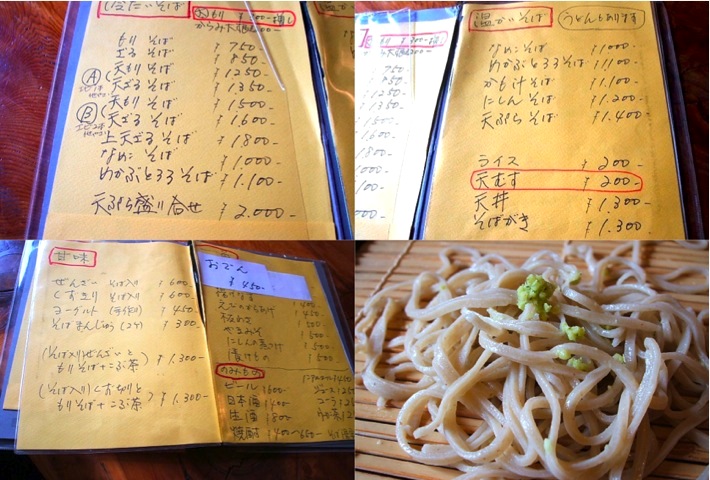 冷たいそば
大もり ¥300-増し
からみ大根 ¥200-
もりそば ¥750-
ざるそば ¥850-
Ⓐ
天もりそば ¥1250-
天ざるそば ¥1350-
Ⓑ
天もりそば ¥1500-
天ざるそば ¥1600-
上天ざるそば ¥1800-
なめこそば ¥1.000-
めかぶとろろそば ¥1.100-
天ぷら盛り合せ ¥2.000-
温かいそば
うどんもあります
なめこそば ¥1000-
めかぶとろろそば ¥1,100-
かも汁そば
にしんそば ¥1.200-
天ぷらそば ¥1.400-
ライス ¥200-
天むす ¥200-
天丼 ¥1.300-
そばがき ¥1.300
甘味
ぜんざい そば入り ¥600-
そば入り ¥600-
ヨーグルト (手作り) ¥450-
そばまんじゅう (2ケ) ¥300-
(そば入り)ぜんざいと
もりそば+こぶ茶 ¥1.300-
(そば入り)
もりそば+こぶ茶 ¥1.300-
おでん
¥450-
板わさ
やきみそ
漬けもの ¥500
のみもの
ビール ¥600-
日本酒
生酒 ¥800
焼酎 ¥400~650-